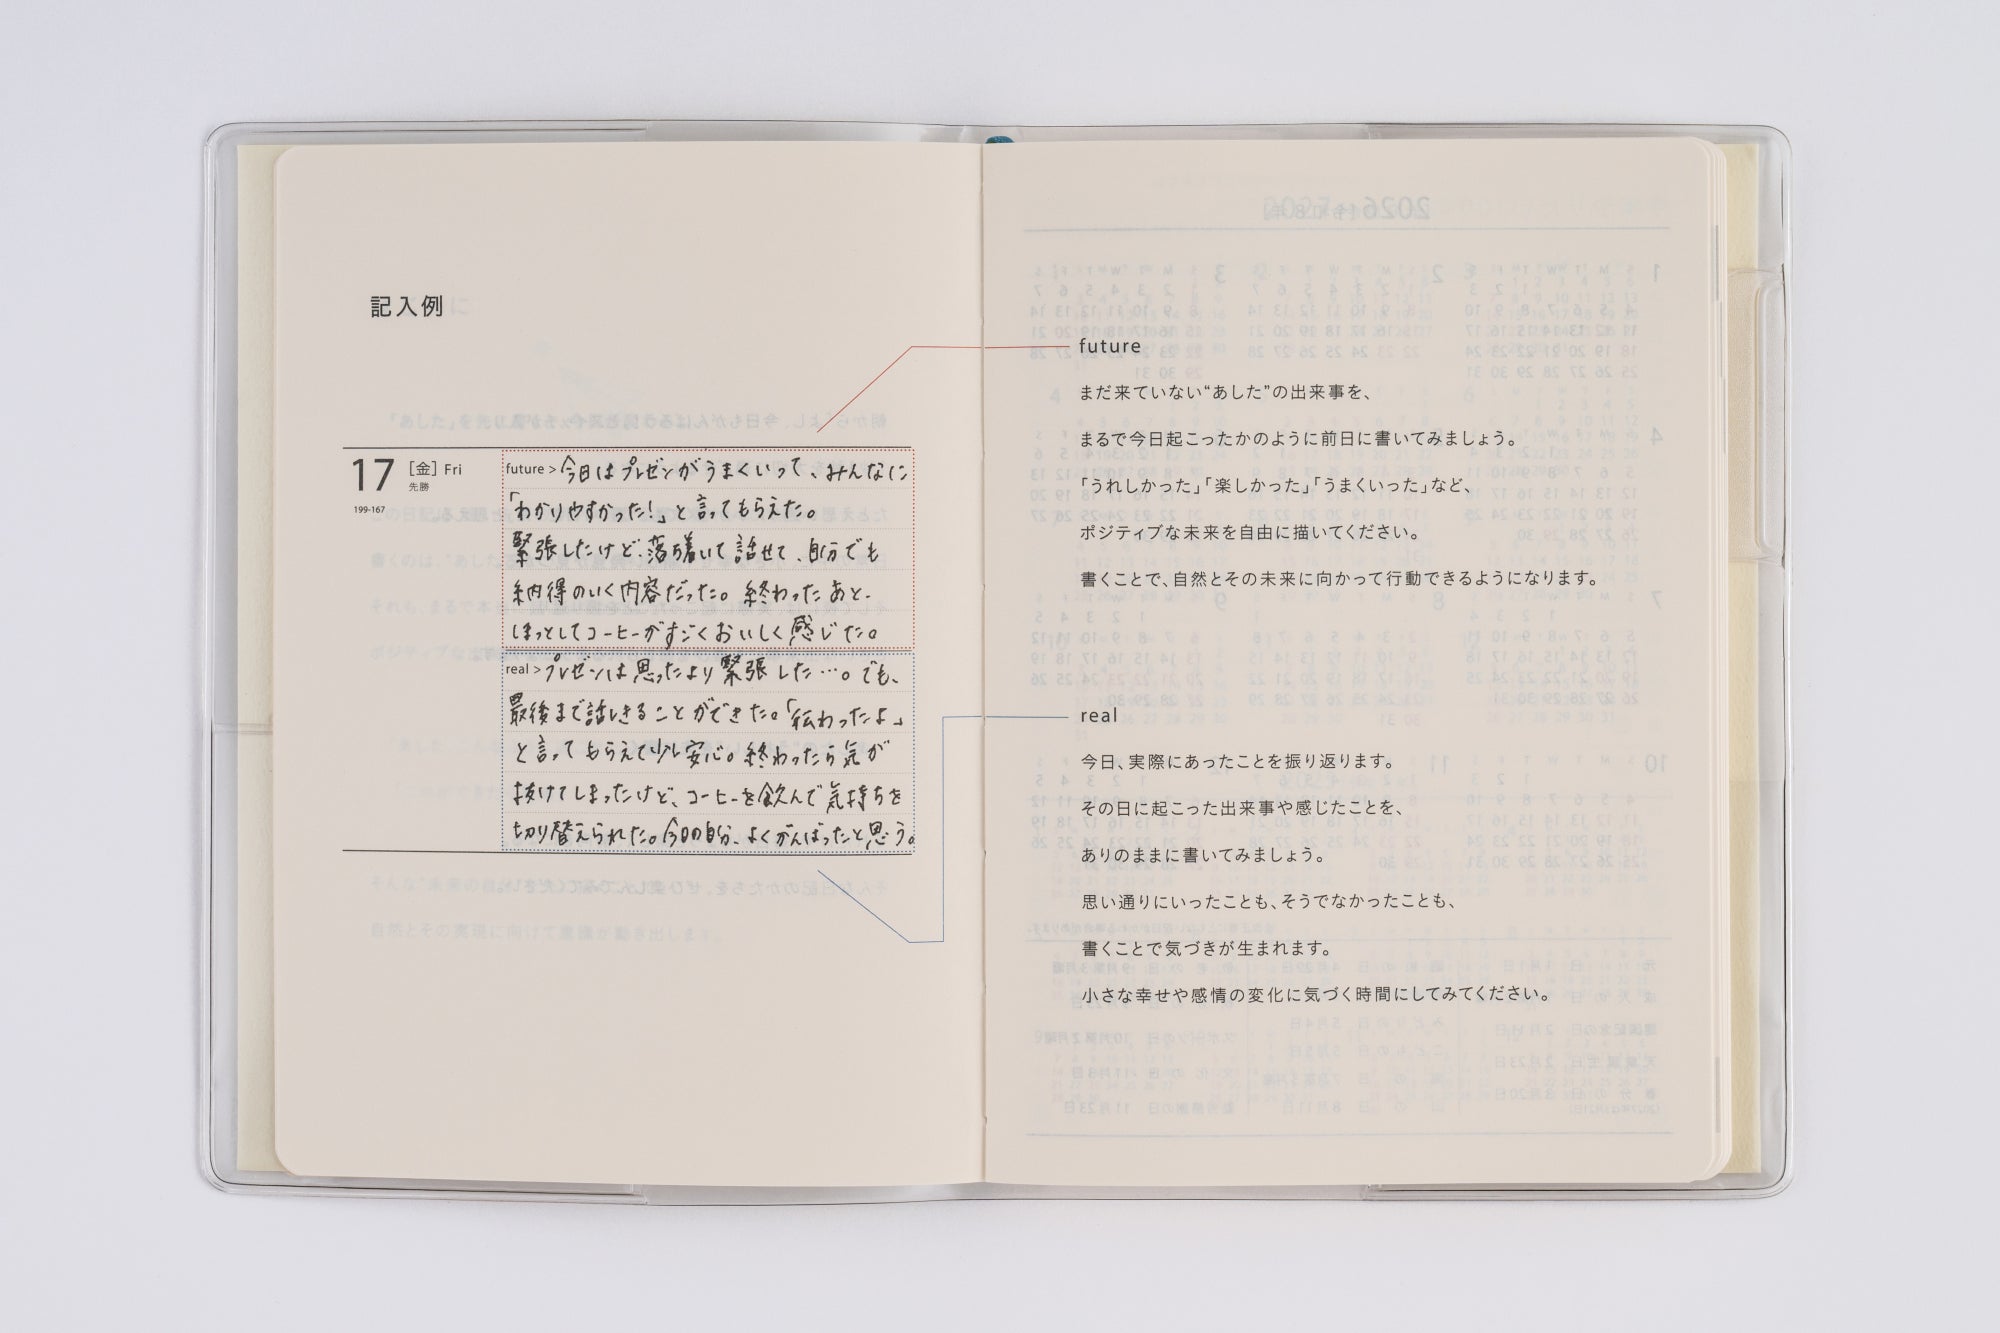 記入例
17 [金] Fri
先勝
199-167
future > 今日はプレゼンがうまくいって、みんなに
「わかりやすかった!」と言ってもらえた。
緊張したけど、落ち着いて話せて、自分でも
納得のいく内容だった。終わったあと、
ほっとしてコーヒーがすごくおいしく感じた。
real > プレゼンは思ったより緊張した…。でも、
最後まで話しきることができた。「伝わったよ」
と言ってもらえて少し安心。終わったら気が
抜けてしまったけど、コーヒーを飲んで気持ちを
切り替えられた。今日の自分、よくがんばったと思う。
future
まだ来ていない“あした”の出来事を、
まるで今日起こったかのように前日に書いてみましょう。
「うれしかった」「楽しかった」「うまくいった」など、
ポジティブな未来を自由に描いてください。
書くことで、自然とその未来に向かって行動できるようになります。
real
今日、実際にあったことを振り返ります。
その日に起こった出来事や感じたことを、
ありのままに書いてみましょう。
思い通りにいったことも、そうでなかったことも、
書くことで気づきが生まれます。
小さな幸せや感情の変化に気づく時間にしてみてください。